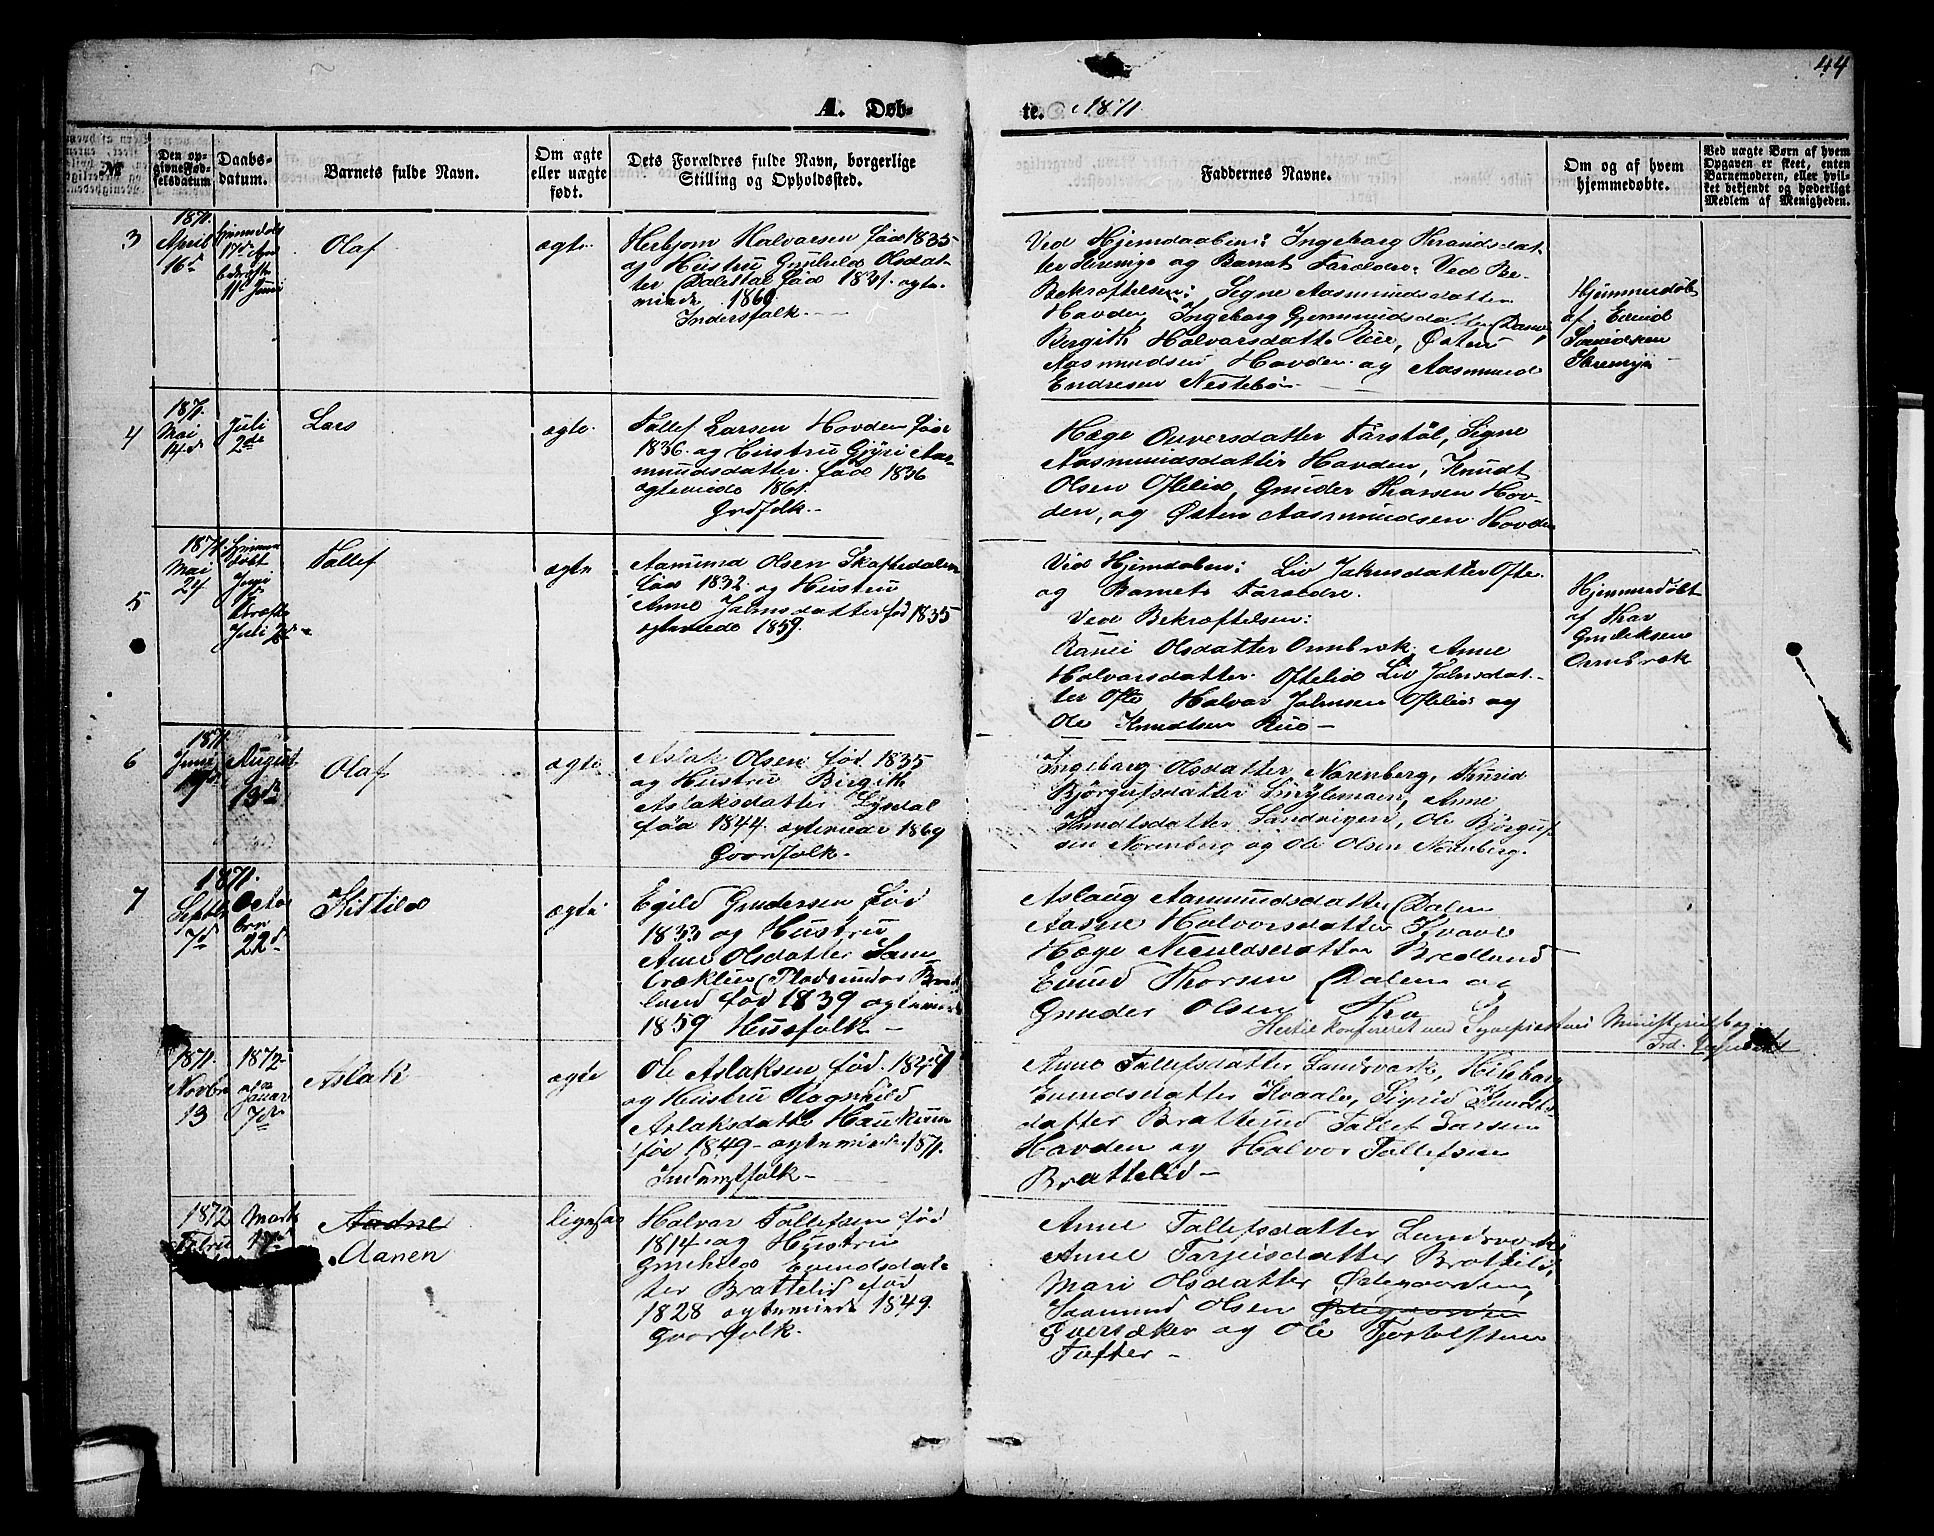 44
A. Døb-
te. 1871.
№
Den op-
givne Fød-
selsdatum
Daabs-
datum.
Barnets fulde Navn.
Om ægte
eller uægte
født.
Dets Forældres fulde Navn, borgerlige
Stilling og Opholdsted.
Faddernes Navne.
Om og af hvem
hjemmedøbte.
Ved uægte Børn af hvem
Opgaven er skeet, enten
Barnemoderen, eller hvil-
ket bekjendt og hæderligt
Medlem af Menigheden.
3
1871.
April
16d
17de
11te Juni
Olaf
ægte
Herbjørn Halvorsen fød 1835
og Hustru Gunhild Olsdat-
ter Dalestøl fød 1831. ægte-
viede 1869
Inderstfolk.
Ved Hjemdaaben: Ingeborg
og Barnets Forældre. Ved Be-
Bekræftelsen: Signe Aasmundsdatter
Hovden, Ingeborg Gjermundsdatter
Bergith Halvorsdatter Rue, Østen
Aasmundsen Hovden og Aasmund
Endresen Nestebø
Hjemmedøbt
af Evend
4
1871.
Mai
14d
Juli
2de
Lars
ægte.
Tallef Larsen Hovden fød
1836. og Hustru Gjyri Aas-
mundsdatter fød 1836
ægteviede 1861.
Grdfolk.
Hæge Ouversdatter Signe
Aasmundsdatter Hovden, Knudt
Olsen Oftelid, Gunder Larsen Hov-
den, og Østen Aasmundsen Hovden
5
1871.
Mai
24
Juli 2d
Tallef
ægte
Aamund Olsen Skaftedalen
fød 1832 og Hustru
Anne Jahnsdatter fød 1835
ægteviede 1859.
Ved Hjemdaaben: Liv Jahnsdatter Ofte
og Barnets Forældre.
Ved Bekræftelsen:
Olsdatter Ormbrek, Anne
Halvorsdatter Oftelid Liv Jahnsdat-
ter Ofte Halvor Jahnsen Oftelid og
Ole Knudtsen Rue
Hjemmedøbt
af Thor
Gundeksen
Ormbrek
6
1871.
Juni
19d
August
13de
Olaf
ægte
Aslak Olsen fød 1835
og Hustru Birgith
Aslaksdatter Lysdal
fød 1844. ægteviede 1869
Gaardfolk.
Ingeborg Olsdatter Norenberg,
Bjørgufsdatter Anne
Knudtsdatter Sandvigen, Ole Bjørguf-
sen Norenberg og Ole Olsen Norenberg.
7
1871.
Septbr
7d
Octo-
bre
22d
Kittild
ægte
Egild Gundersen fød
1833 og Hustru
Anne Olsdatter
Pladsunder Bred-
land fød 1839 ægteviede
1859. Husfolk
Aslaug Aamundsdatter Dalen
Aasne Halvorsdatter Kvaale
Hæge Niculdsdatter Bredland
Evind Thorsen Dalen og
Gunder Olsen
Hertil konfereret med Sognepræstens Ministerialbog
1871.
Novbr
13
1872
Januar
7de
Aslak
ægte
Ole Aslaksen fød 1847
og Hustru Ragnhild
Aslaksdatter Haukum
fød 1849 ægteviede 1871.
Inderstfolk
Anne Tallefsdatter Lundsvark, Hileborg
Evendsdatter Kvaale, Sigrid Knudts-
datter Brattelid Tallef Larsen
Hovden og Halvor Tallefsen
Brattelid
1872
Februar
Marts
17de
Aadne
Aanen
ligesaa
Halvor Tallefsen fød
1814 og Hustru
Gunhild Evendsdat-
ter Brattelid fød
1828 ægteviede 1849.
Gaardfolk.
Anne Tallefsdatter Lundsvark
Anne Tarjeisdatter Brattelid,
Mari Olsdatter Ødegaarden,
Olsen Ødegaarden
Øversaker og Ole Tjostolfsen
Tofter